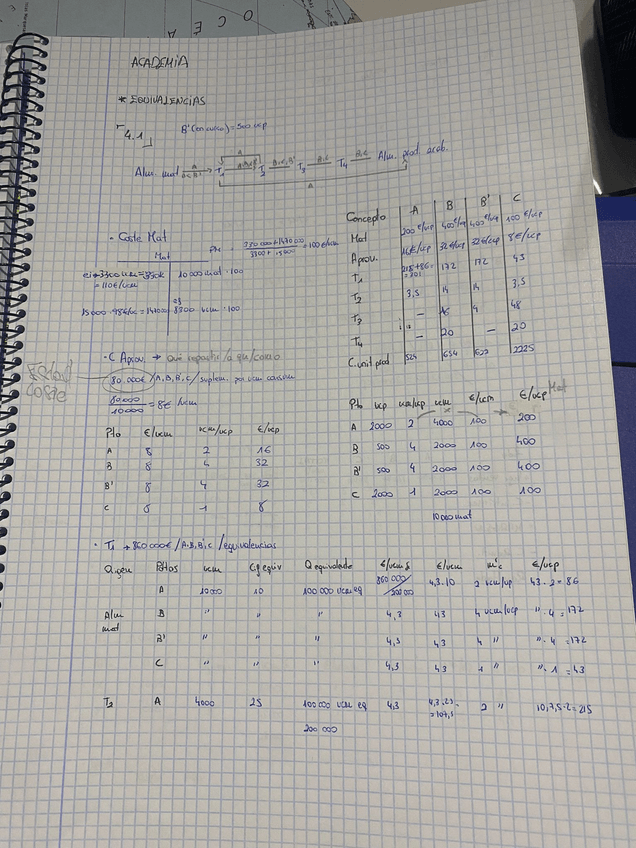 O C E A
ACADEMIA
* EQUIVALENCIAS
4.1 B' (en curso) = 500 ucp
Alm. mat → T1 T2 B,C,B' T3 B,C T4 B,C Alm. prod. acab.
A
Concepto A B B' C
Mat 200 €/ucp 400 €/ucp 400 €/ucp 100 €/ucp
Aprov. 16€/ucp 32€/ucp 32€/ucp 8€/ucp
T1 215+86= 301 172 172 43
T2 3,5 14 14 3,5
T3 — 16 4 48
T4 — 20 — 20
C. unit prod 634 622 2225
· Coste Mat
Mat
= 100 €/ucm
= 110€/ucm 10000 mat · 100
8300 ucm · 100
· C Aprov. → Qué reparto / a qu / como
80.000€ / A, B, B', C /
80000/10000 = 8€ /ucm
Pto €/ucm ucm/ucp €/ucp
A 8 2 16
B 8 4 32
B' 8 4 32
C 8 1 8
Pto ucp ucm/ucp ucm €/ucm €/ucp Mat
A 2000 2 4000 100 200
B 500 4 2000 100 400
B' 500 4 2000 100 400
C 2000 1 2000 100 100
10000 mat
· T1 → 860000€ / A, B, B', C / equivalencias
Origen Ptos ucm Cf equiv Q equivalente €/ucm €/ucm m'c €/ucp
A 10000 10 100 000 ucm eq 860 000/200 000 4,3·10 2 ucm/up 43·2 = 86
Alm mat B " " " 4,3 43 4 ucm/ucp "·4 = 172
B' " " " 4,3 43 4 " "·4 = 172
C " " " 4,3 43 1 " "·1 = 43
T2 A 4000 25 100 000 ucm eq 4,3 4,3·25 = 107,5 2 " 10,7,5·2 = 215
200 000